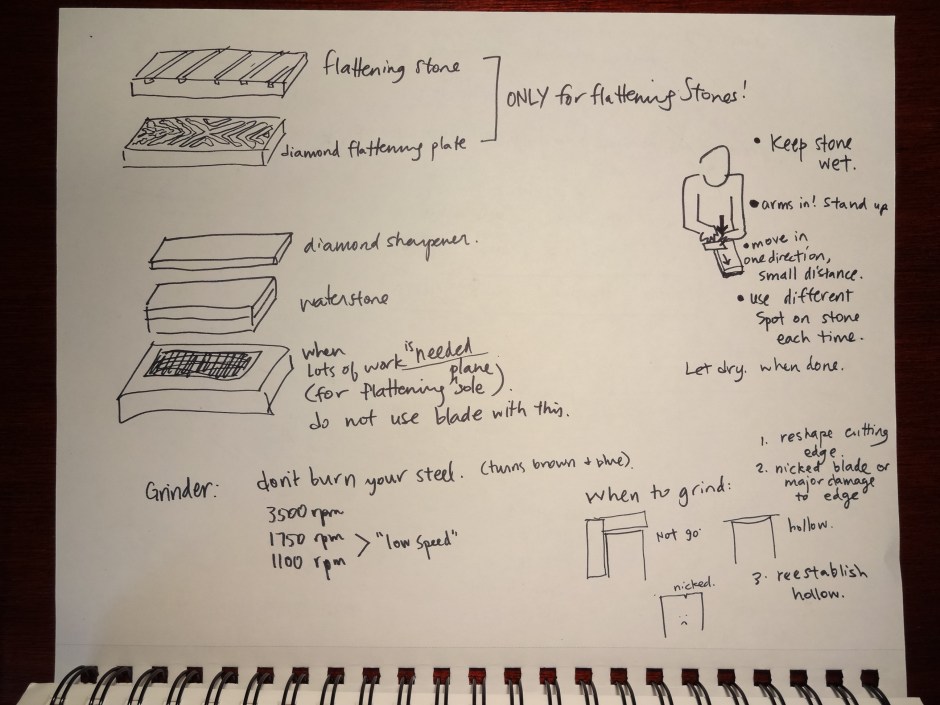 flattening stone
diamond flattening plate
ONLY for flattening stones!
• Keep stone
wet.
• arms in! Stand up
• move in
one direction,
small distance.
• use different
spot on stone
each time.
Let dry. when done.
diamond sharpener.
waterstone
when
Lots of work is needed
(for flattening plane sole).
do not use blade with this.
Grinder: don't burn your steel. (turns brown + blue).
3500 rpm
1750 rpm
1100 rpm
"low speed"
When to grind:
1. reshape cutting
edge.
2. nicked blade or
major damage
to edge
Not 90°
hollow.
nicked.
3. reestablish
hollow.